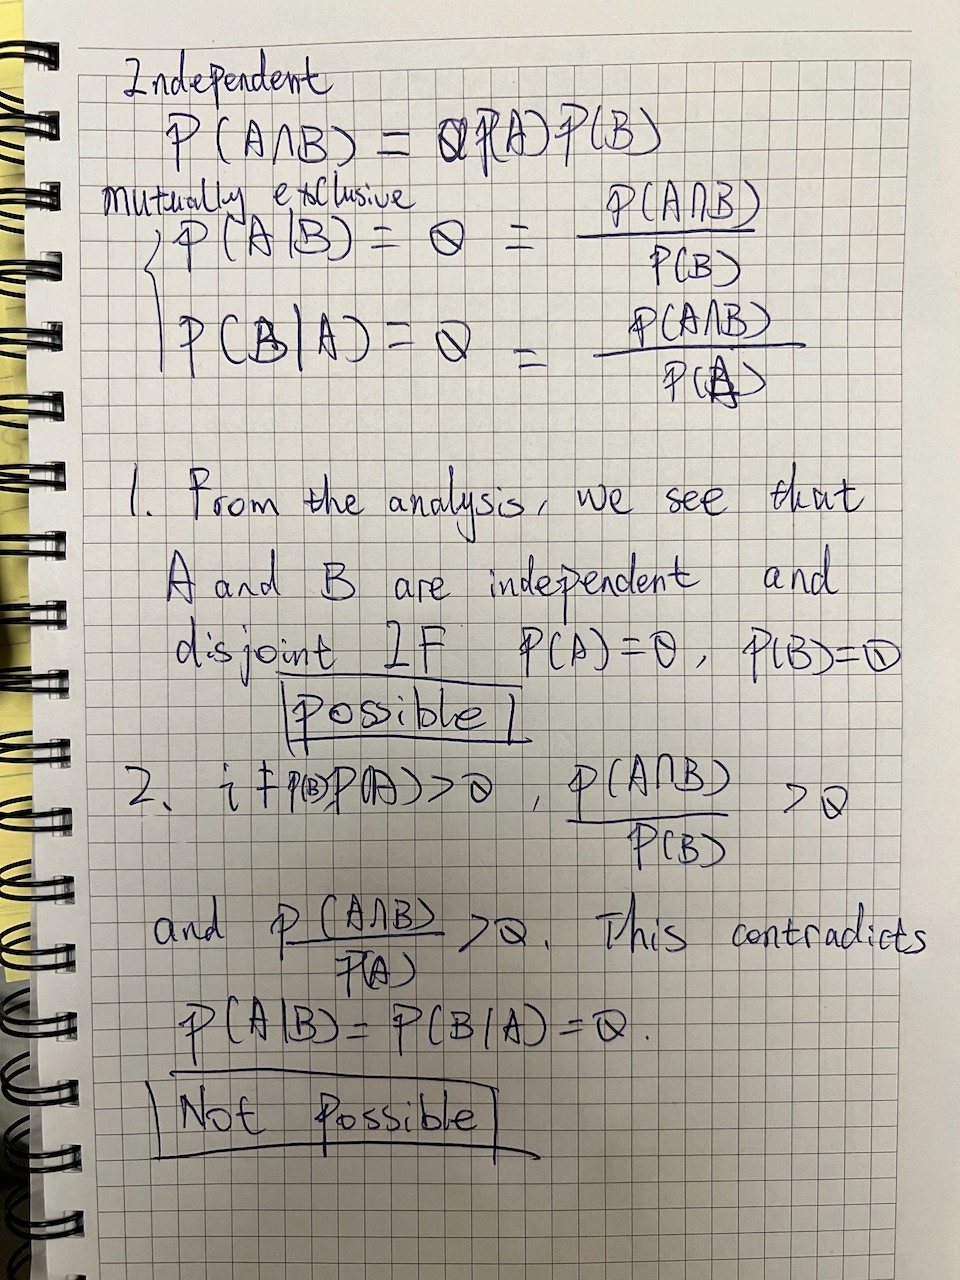 Independent
P(A∩B) = P(A)P(B)
mutually exclusive
P(A|B) = 0 = P(A∩B) / P(B)
P(B|A) = 0 = P(A∩B) / P(A)
1. From the analysis, we see that
A and B are independent and
disjoint IF P(A)=0, P(B)=0
Possible
2. if P(B)P(A)>0, P(A∩B) / P(B) >0
and P(A∩B) / P(A) >0. This contradicts
P(A|B)= P(B|A)=0.
Not Possible